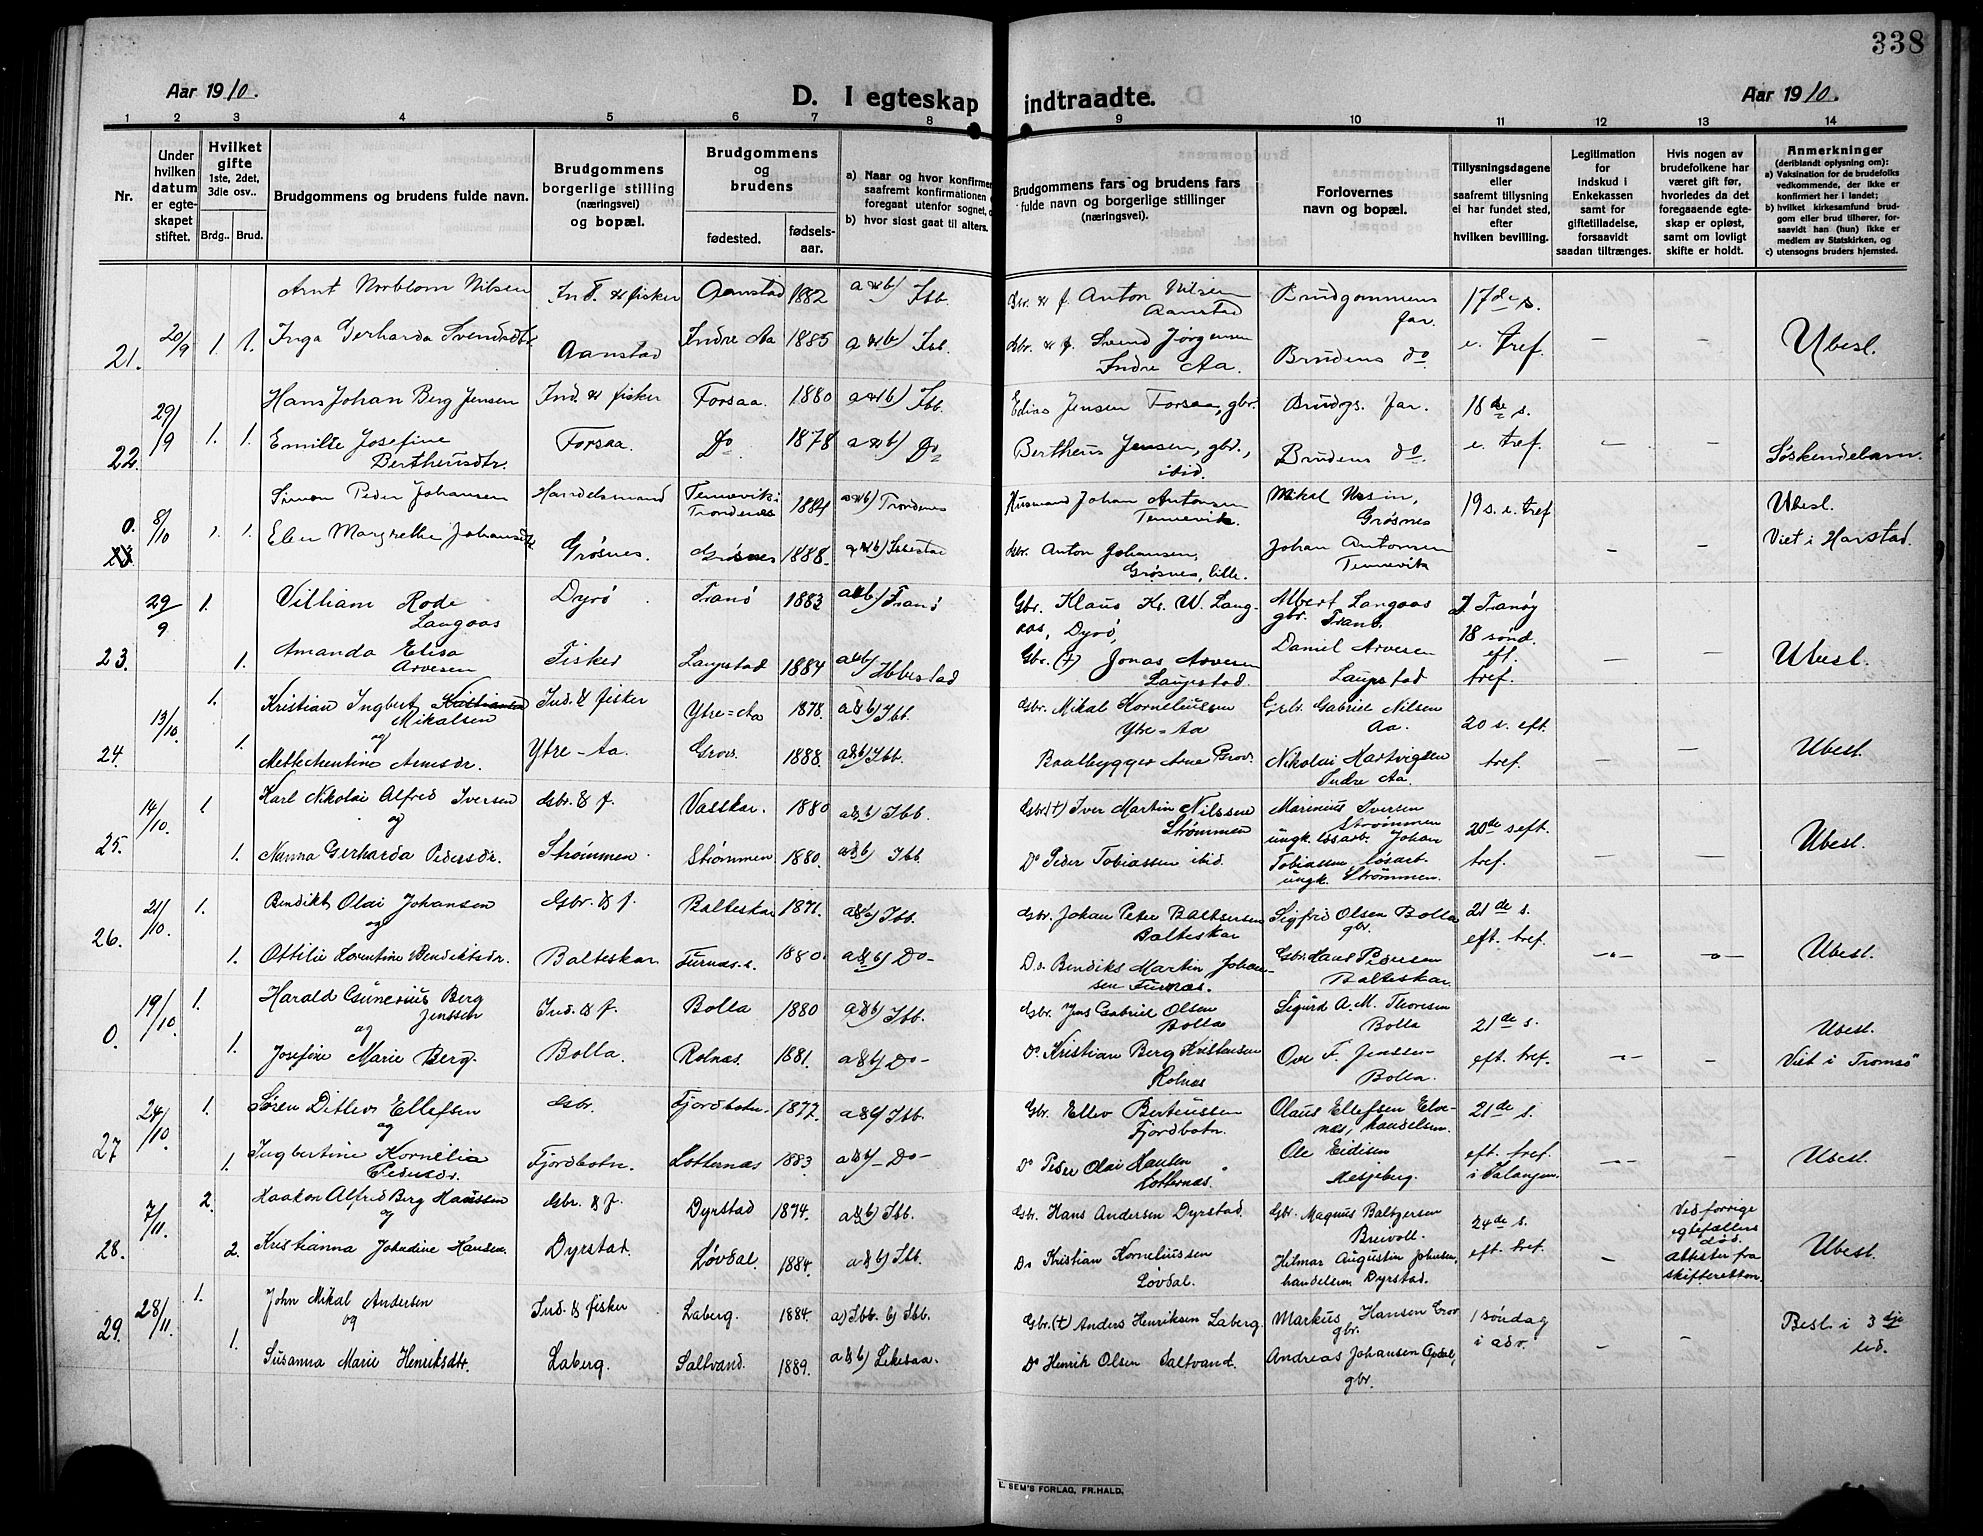 338
Aar 1910.
D. I egteskap indtraadte.
Aar 1910.
1 2 3 4 5 6 7 8 9 10 11 12 13 14
Nr.
Under hvilken datum er egteskapet stiftet.
Hvilket gifte 1ste, 2det, 3die osv..
Brdg.. Brud.
Brudgommens og brudens fulde navn.
Brudgommens borgerlige stilling (næringsvei) og bopæl.
Brudgommens og brudens
fødested. fødselsaar.
a) Naar og hvor konfirmer
saafremt konfirmationen
foregaat utenfor sognet,
b) hvor sidst gaat til alters.
Brudgommens fars og brudens fars fulde navn og borgerlige stillinger (næringsvei).
Forlovernes navn og bopæl.
Tillysningsdagene eller saafremt tillysning ei har fundet sted, efter hvilken bevilling.
Legitimation for indskud i Enkekassen samt for giftetilladelse, forsaavidt saadan tiltrænges.
Hvis nogen av brudefolkene har været gift før, hvorledes da det foregaaende egteskap er opløst, samt om lovligt skifte er holdt.
Anmerkninger (deriblandt oplysning om):
a) Vaksination for de brudefolks vedkommende, der ikke er konfirmert her i landet;
b) hvilket kirkesamfund brudgom eller brud tilhører, forsaavidt han (hun) ikke er medlem av Statskirken, og
c) utensogns bruders hjemsted.
Arnt Norblom Nilsen Ind. & fisker Aanstad 1882 a & b) Ibb. Gbr. & f. Anton Nilsen Aanstad Brudgommens far. 17de s.
21. 20/9 1. 1. Inga Gerharda Svendsdtr. Aanstad Indre Aa 1885 a & b) Ibb. Gbr. & f. Svend Jørgensen Indre Aa. Brudens do e. tref. — — Ubesl.
Hans Johan Berg Jensen Ind. & fisker Forsaa. 1880 a & b) Ibb. Edias Jensen Forsaa, gbr. Brudgs. far. 18de s.
22. 29/9 1. 1. Emilie Josefine Bertheusdtr. Forsaa. Do 1878 a & b) Do Bertheus Jensen, gbr., ibid. Brudens do. e. tref. — — Søskendebarn.
Simon Peder Johansen Handelsmand Tennevik i Trondenes 1884 a & b) Trondenes Husmand Johan Antonsen Tennevik. Mikal Grøsnes 19 s. e. tref Ubesl.
0. 23 8/10 1. 1. Elen Margrethe Johansdtr Grøsnes. Grøsnes 1888. a & b) Ibbestad Gbr. Anton Johansen, Grøsnes, lille. Johan Antonsen Tennevik — — Viet i Harstad.
29/9 1. William Rode Langaas Dyrø Tranø 1883 a & b) Tranø Gbr. Klaus Kr. W. Langaas, Dyrø, Albert Langaas gbr. Tranø. I Tranøy 18 sønd.
23. 1. Amanda Elisa Arvesen Fisker Laupstad 1884 a & b) Ibbestad Gbr. (†) Jonas Arvesen Laupstad. Daniel Arvesen Laupstad eft. tref. — — Ubesl.
13/10 1. Kristian Ingbert Kristiansen Mikalsen Ind. & fisker Ytre-Aa 1878. a & b) Ibb. Gbr. Mikal Korneliussen Ytre-Aa Gbr. Gabriel Nilsen Aa. 20 s. eft.
og
24. 1. Mette Mentine Arnesdr. Ytre-Aa. Grov. 1888. a & b) Ibb. Baatbygger Arne Grov. Nikolai Hartvigsen Indre Aa tref. — — Ubesl.
14/10 1. Karl Nikolai Alfred Iversen Gbr. & f. Vasskar. 1880 a & b) Ibb. Gbr. (†) Iver Martin Nilssen Strømmen Marinius Iversen Strømmen ungk. løsarb. 20de s eft.
og
25. 1. Nanna Gerharda Pedersdr. Strømmen. Strømmen 1880. a & b) Ibb. Do Peder Tobiassen ibid. Johan Tobiassen, løsarb. ungk. Strømmen. tref. — — Ubesl.
21/10 1. Bendikt Olai Johansen Gbr. & f. Balteskar 1871. a & b) Ibb. Gbr. Johan Peter Baltsersen Balteskar Sigfrid Olsen Bolla gbr. 21de s.
og
26. 1. Ottilie Lorentine Bendiktsdr. Balteskar. Furnæs. 1880. a & b) Do- Do. Bendiks Martin Johansen Furnæs. Gbr. Hans Pedersen Balteskar. eft. tref. — — Ubesl.
19/10 1. Harald Gunerius Berg Jenssen Ind. & f. Bolla 1880 a & b) Ibb. Gbr. Jens Gabriel Olsen Bolla Sigurd A. M. Thoresen Bolla 21de s. Ubesl.
og
0. 1. Josefine Marie Berg. Bolla. Rolnæs. 1881. a & b) Do- Do Kristian Berg Kristensen Rolnæs Ove F. Jenssen Bolla. eft. tref. — — Viet i Tromsø
24/10 1. Søren Ditlev Ellefsen Gbr. Fjordbotn. 1877. a & b) Ibb. Gbr. Ellev Berteussen Fjordbotn. Olaus Ellefsen Elvenæs, handelsm. 21de s.
og
27 1. Ingbertine Kornelia Pedersdr. Fjordbotn. Lotternæs 1883 a & b) - Do- Do Peder Olai Hansen Lotternæs. Ole Eidisen eft. tref. i Salangen. — — Ubesl.
7/11. 2. Haakon Alfred Berg Hanssen Gbr. & f. Dyrstad 1874. a & b) Ibb. Gbr. Hans Andersen Dyrstad. Gbr. Magnus Baltzersen Breivoll. 24de s. Ved forrige egtefællers død.
og
28. 2. Kristianna Johndine Hansen. Dyrstad. Løvdal. 1884. a & b) Ibb. Do Kristian Korneliussen Løvdal. Hilmar Augustin Johnsen, handelsm. Dyrstad. eft. tref. — Attester fra skifteretten. Ubesl.
28/11. 1. John Mikal Andersen Ind. & fisker Laberg. 1884. a) Ibb. b) Ibb. Gbr. (†) Anders Henriksen Laberg. Markus Hansen Grov gbr. 1 søndag Besl. i 3dje led.
og
29. 1. Susanna Marie Henriksdtr. Laberg. Saltvand. 1889. a & b) Lekesaa. Do Henrik Olsen Saltvand. Andreas Johansen gbr. i adv. — —
E. SEM'S FORLAG, FR.HALD.